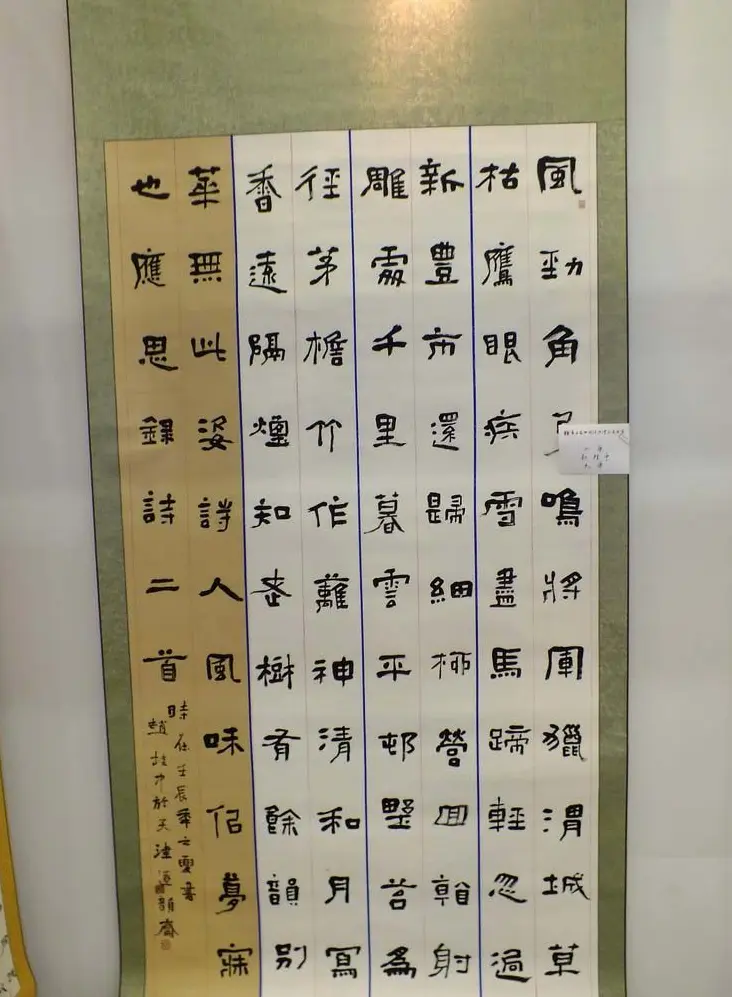 風勁角弓鳴將軍獵渭城草
枯鷹眼疾雪盡馬蹄輕忽過
新豐市還歸細柳營回看射
雕處千里暮雲平邨墅苔為
徑茅檐竹作籬神清和月寫
香遠隔煙知老樹有餘韻別
華無此姿詩人風味侣夢寐
也應思錄詩二首
時在壬辰年之夏書
趙中於天津道韻齋